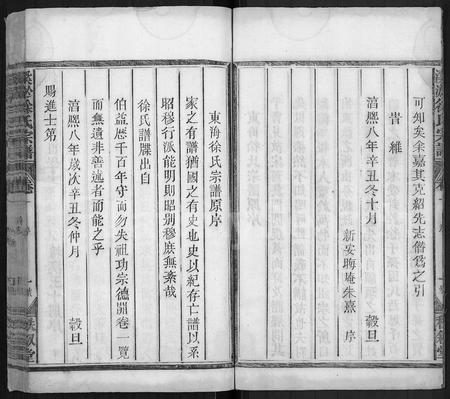 可知矣余嘉其克紹先志僭爲之引
淳熈八年辛丑冬十月 穀旦
新安晦庵朱熹 序
東海徐氏宗譜原序
家之有譜猶國之有史也史以紀存亡譜以系
昭穆行派能明則昭别穆庶無紊哉
徐氏譜牒出自
伯益歴千百年守而勿失祖功宗德淵卷一覽
而無遺非善述者而能之乎
淳熈八年歲次辛丑冬仲月 穀旦
賜進士第
徐氏宗譜 卷